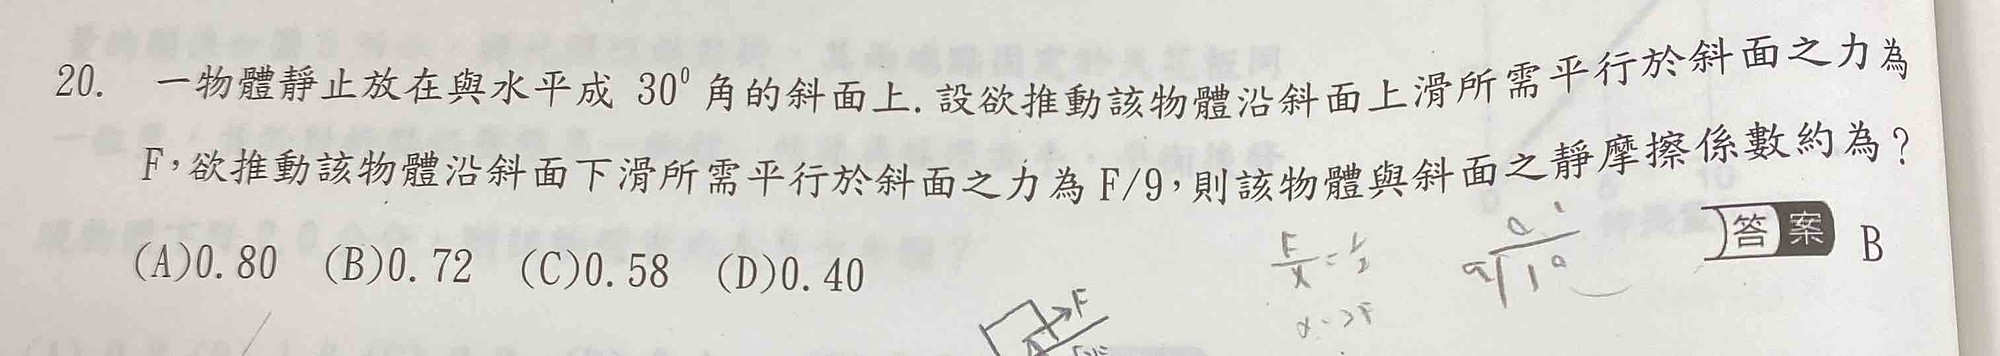 20. 一物體靜止放在與水平成 30⁰ 角的斜面上. 設欲推動該物體沿斜面上滑所需平行於斜面之力為
F，欲推動該物體沿斜面下滑所需平行於斜面之力為 F/9，則該物體與斜面之靜摩擦係數約為？
答案 B
(A)0.80 (B)0.72 (C)0.58 (D)0.40
F/x = 1/2
F